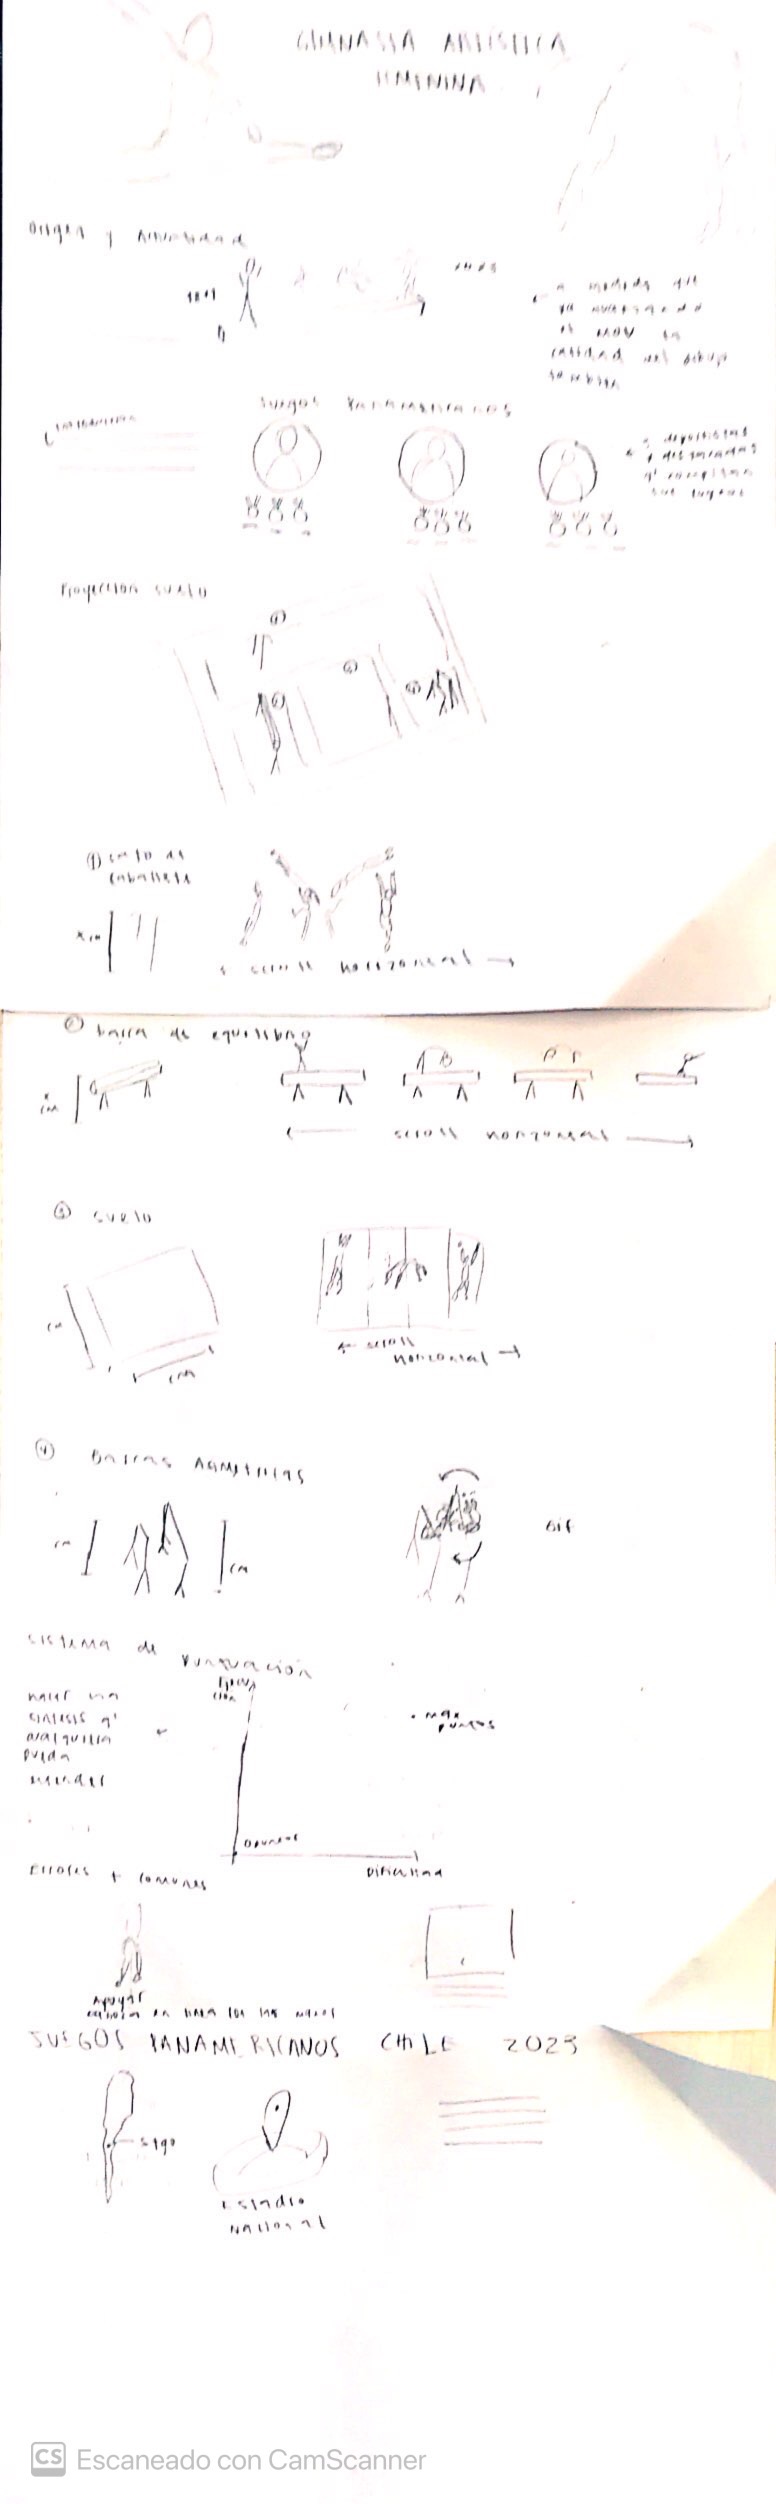 GIMNASIA ARTISTICA
FEMENINA
Origen y Actualidad
a medida que
va avanzando
el mov la
calidad del dibujo
tambien
Juegos Panamericanos
3 deportistas
+ destacadas
q' compitan
Proyeccion suelo
① salto de
caballete
x cm
← scroll horizontal →
② barra de equilibrio
x
cm
scroll horizontal
③ suelo
cm
cm
← scroll
horizontal →
④ Barras Asimetricas
cm
cm
GIF
sistema de Puntuación
hacer una
sintesis q'
cualquiera
pueda
entender
Ejecu
ción
• max
puntos
0 puntos
Dificultad
Errores + comunes
Apoyar
cabeza en linea con las manos
JUEGOS PANAMERICANOS CHILE 2023
stgo
Estadio
Nacional
CS Escaneado con CamScanner